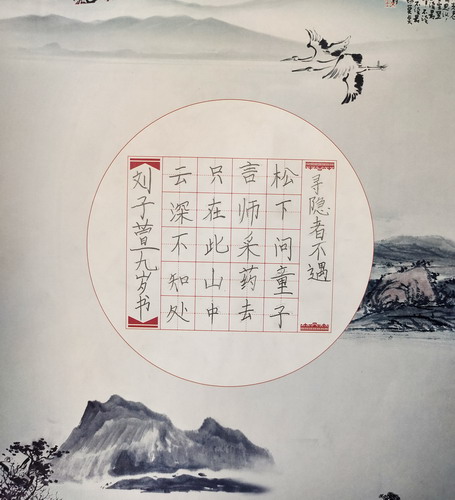 寻隐者不遇
松下问童子
言师采药去
只在此山中
云深不知处
刘子萱九岁书